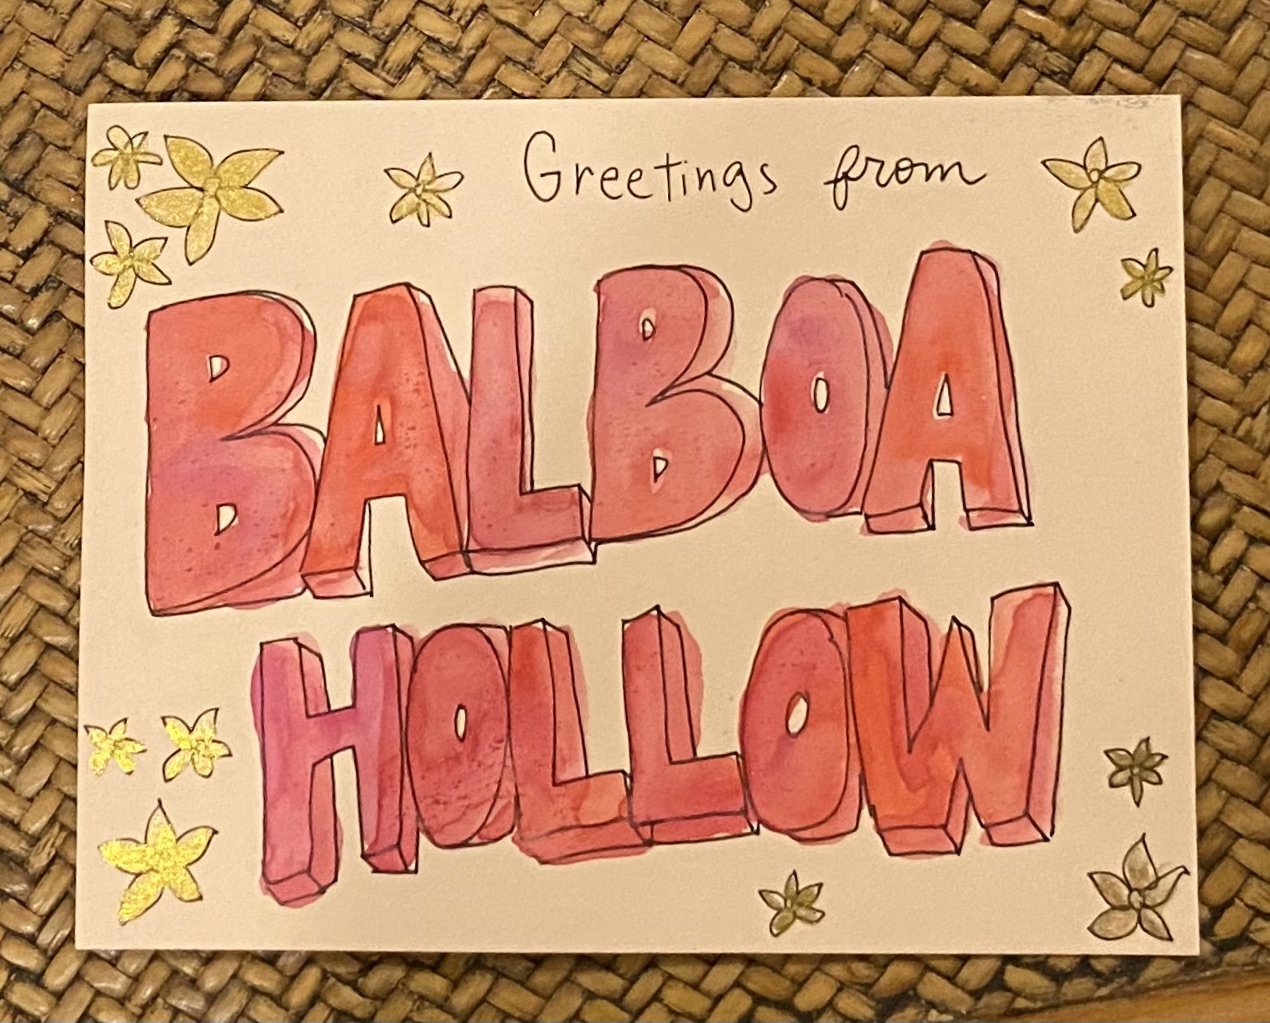 Greetings from
BALBOA
HOLLOW